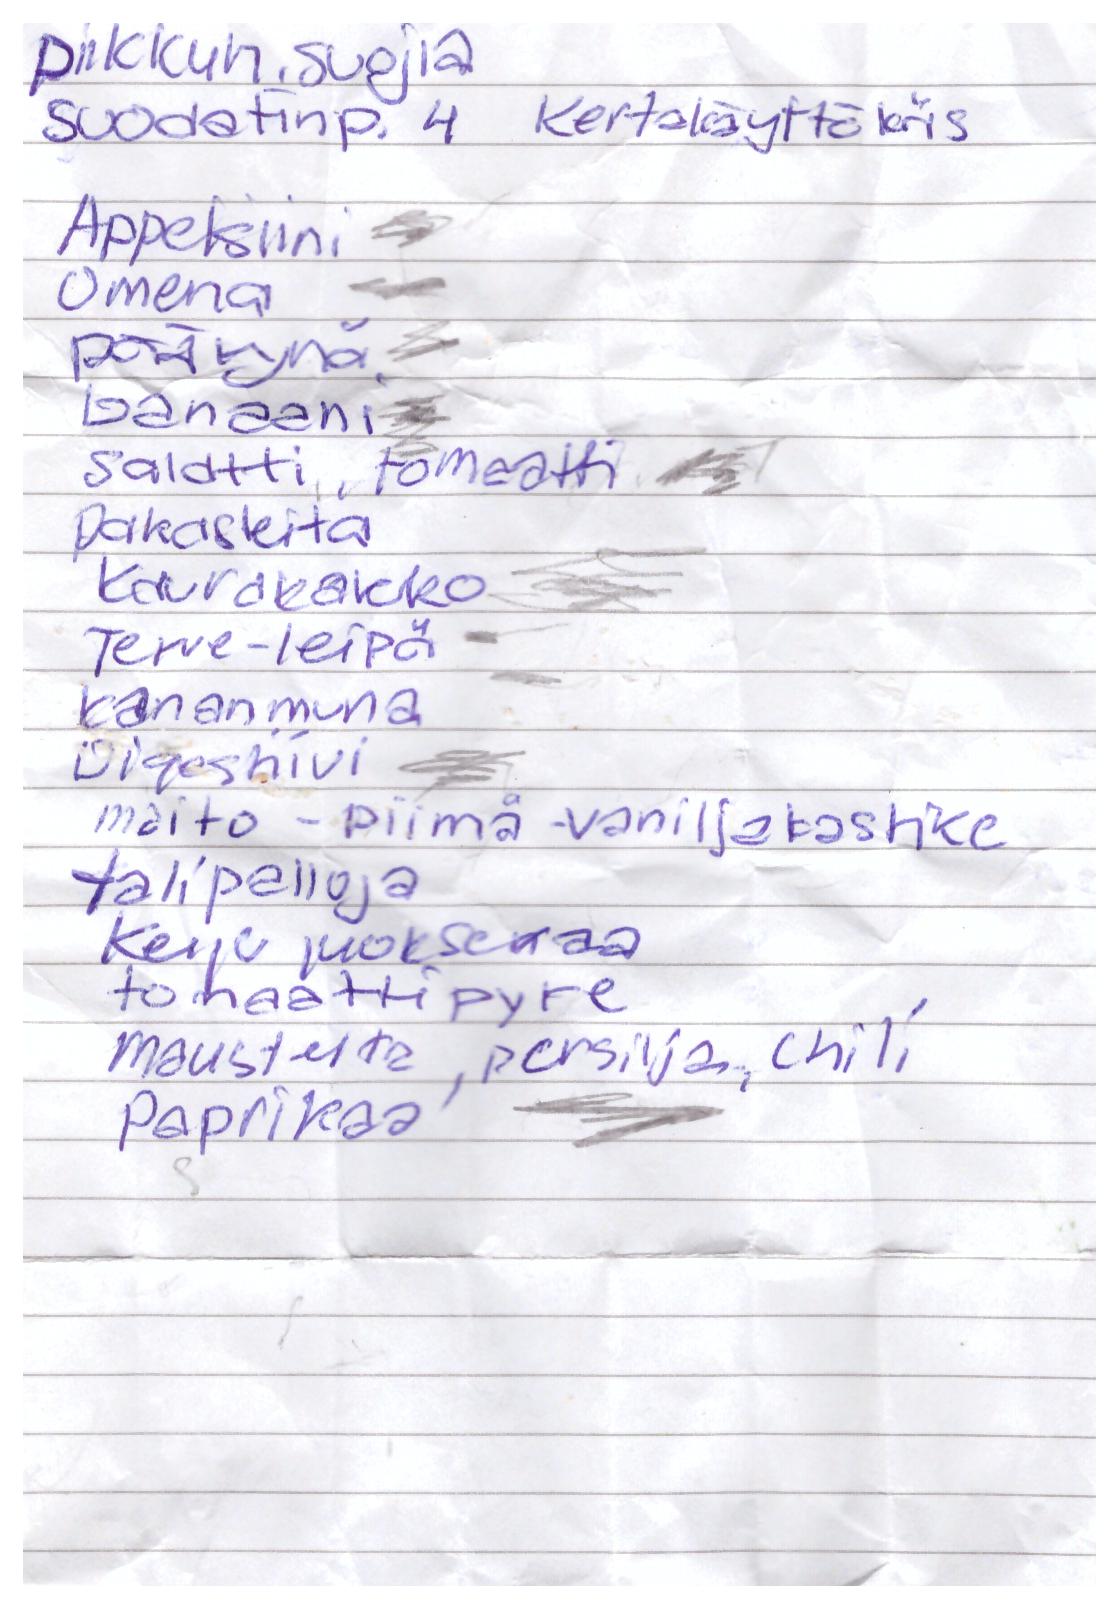 pikkuh.suojia
suodatinp. 4 Kertakäyttökäs
Appelsiini
Omena
päärynä
banaani
salatti, tomaatti
pakasteita
Kaurakakko
Terve-leipä
kananmuna
Digestiivi
maito - piimä - vaniljakastike
talipalloja
Kerju juoksevaa
tomaattipyre
Mausteita, persilja, chili
Paprikaa